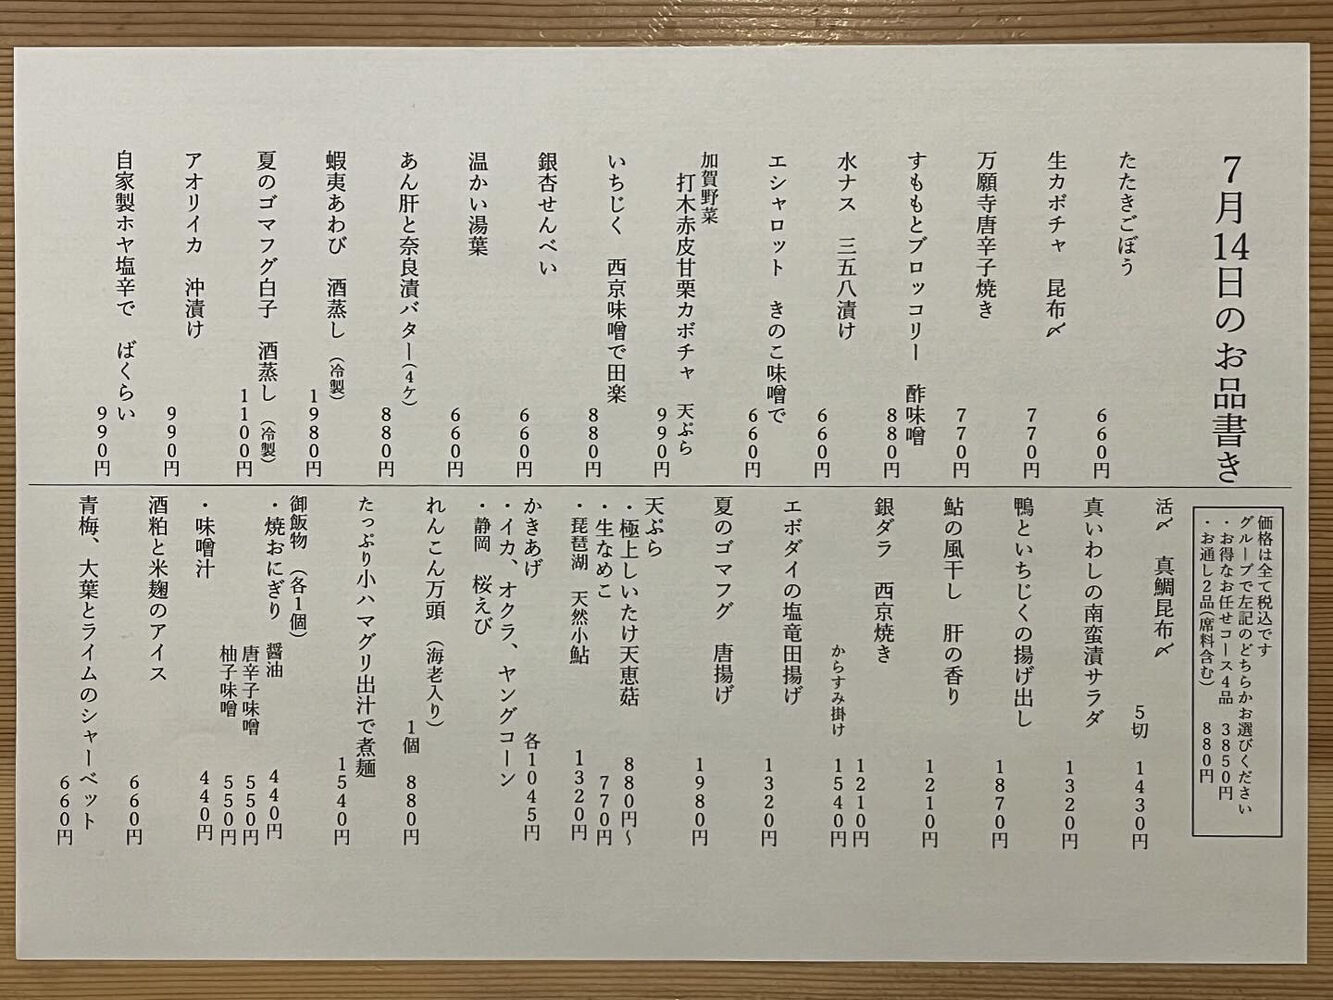 7月14日のお品書き
たたきごぼう
660円
生カボチャ 昆布〆
770円
万願寺唐辛子焼き
770円
すももとブロッコリー 酢味噌
880円
水ナス 三五八漬け
660円
エシャロット きのこ味噌で
660円
加賀野菜
打木赤皮甘栗カボチャ 天ぷら
990円
いちじく 西京味噌で田楽
880円
銀杏せんべい
660円
温かい湯葉
660円
あん肝と奈良漬バター(4ケ)
880円
蝦夷あわび 酒蒸し (冷製)
1980円
夏のゴマフグ白子 酒蒸し (冷製)
1100円
アオリイカ 沖漬け
990円
自家製ホヤ塩辛で ばくらい
990円
価格は全て税込です
グループで左記のどちらかお選びください
・お得なお任せコース4品 3850円
・お通し2品(席料含む) 880円
活〆 真鯛昆布〆
5切 1430円
真いわしの南蛮漬サラダ
1320円
鴨といちじくの揚げ出し
1870円
鮎の風干し 肝の香り
1210円
銀ダラ 西京焼き
1210円
からすみ掛け 1540円
エボダイの塩竜田揚げ
1320円
夏のゴマフグ 唐揚げ
1980円
天ぷら
・極上しいたけ天恵菇 880円〜
・生なめこ 770円
・琵琶湖 天然小鮎 1320円
かきあげ 各1045円
・イカ、オクラ、ヤングコーン
・静岡 桜えび
れんこん万頭 (海老入り)
1個 880円
たっぷり小ハマグリ出汁で煮麺
1540円
御飯物 (各1個)
・焼おにぎり 醤油 440円
唐辛子味噌 550円
柚子味噌 550円
・味噌汁 440円
酒粕と米麹のアイス
660円
青梅、大葉とライムのシャーベット
660円